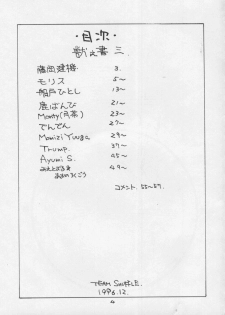 ・目次・
獣え書 三
藤岡建機 3.
モリス 5〜
朝戸ひとし 13〜
鹿ばんび 21〜
Monty(月茶) 23〜
でんでん 27〜
Momizi Yuuga 29〜
Trump. 37〜
Ayumi S. 45〜
49〜
コメント. 55〜57.
TEAM SHUFFLE.
1996.12.
4